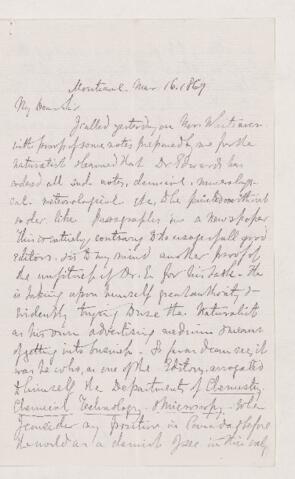 Montreal Mar 16. 1869
My Dear Sir
I called yesterday on Mr. Whiteaves
with proof of some notes prepared by me for the
naturalist & learned that Dr Edwards has
ordered all such notes, chemical, mineralogi-
cal meteorological &c, to be printed without
order like paragraphs in a newspaper
This is entirely contrary to the usage of all good
editors. Is to my mind another proof of
the unfitness of Dr. E. for his task. He
is taking upon himself great authority &
evidently trying to use the Naturalist
as his own advertising medium & means
of getting into business. So far as I can see, it
was he who, as one of the Editors, arrogated
to himself the Department of Chemistry,
Chemical Technology & Microscopy.
I consider my position in Canada & before
the world as a chemist I see in this only